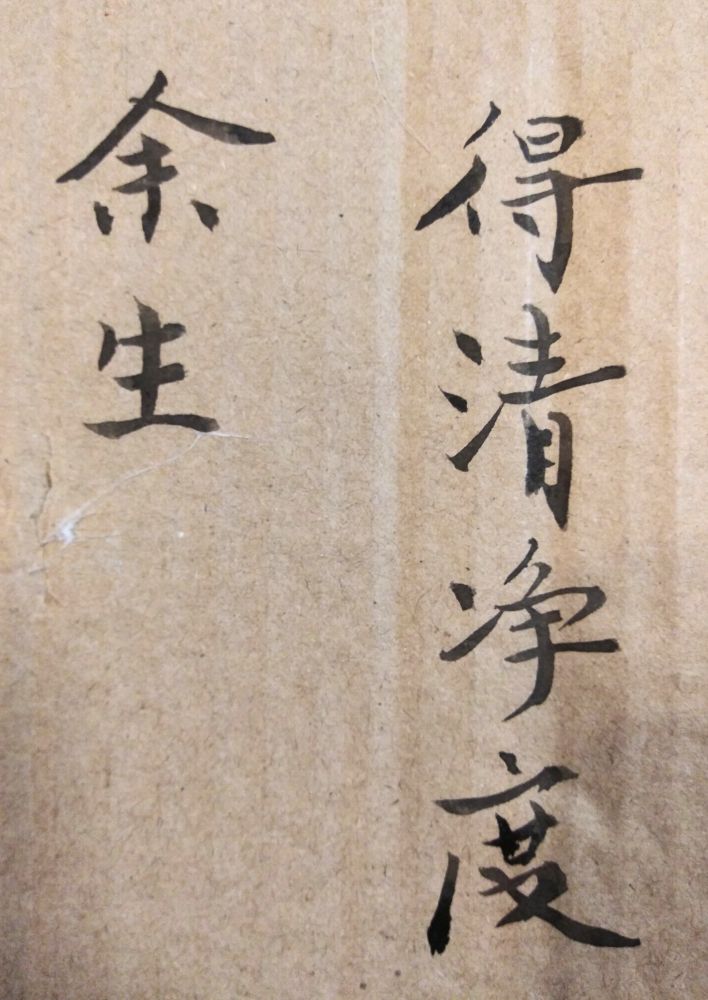 得清净度
余生